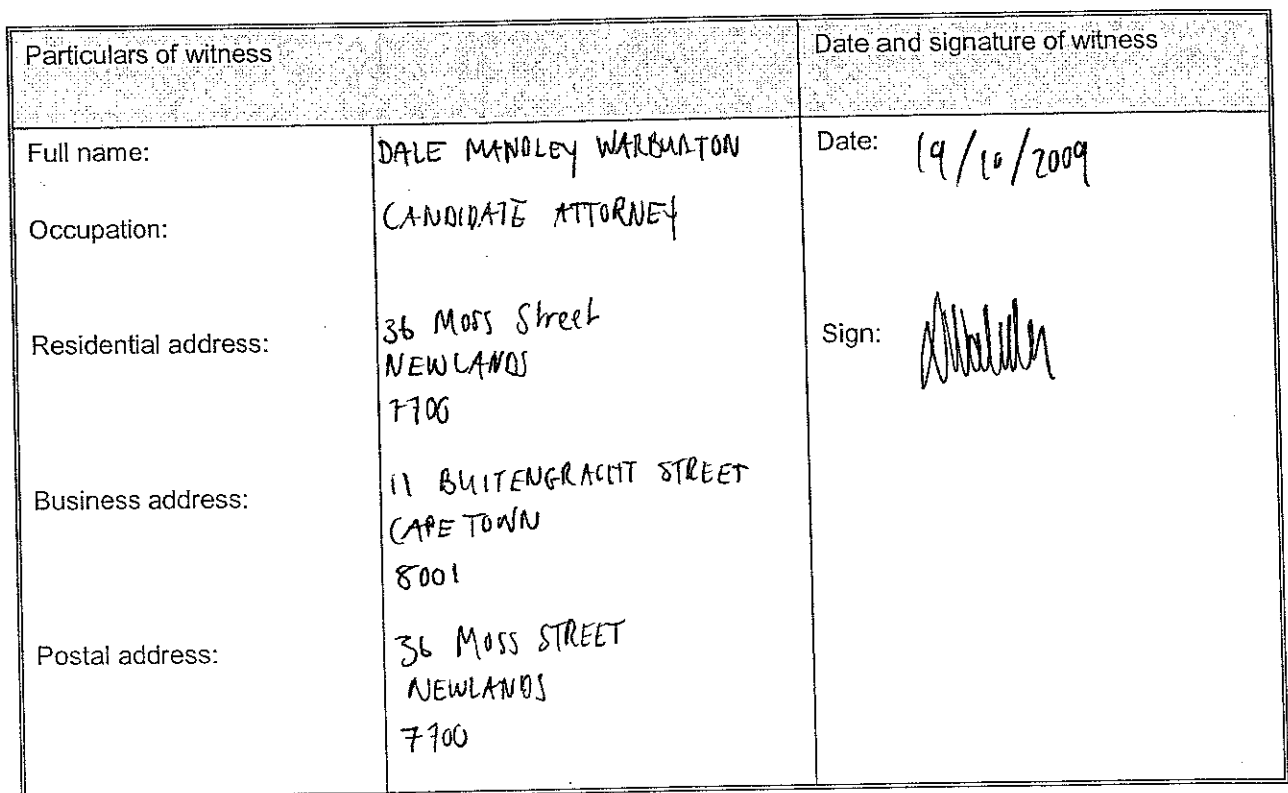 Particulars of witness
Date and signature of witness
Full name:
DALE MANDLEY WARBURTON
Date: 19/10/2009
Occupation:
CANDIDATE ATTORNEY
Residential address:
36 Moss Street
NEWLANDS
7700
Sign:
Business address:
11 BUITENGRACHT STREET
CAPE TOWN
8001
Postal address:
36 MOSS STREET
NEWLANDS
7700